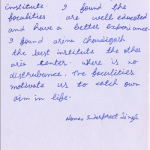 institute I found the
faculities are well educated
and have a better experience
I found arina chandigarh
the best institute the other
aris center. where is no
distrubance. The faculities
motivate us to catch own
aim in life.
Name
Singh